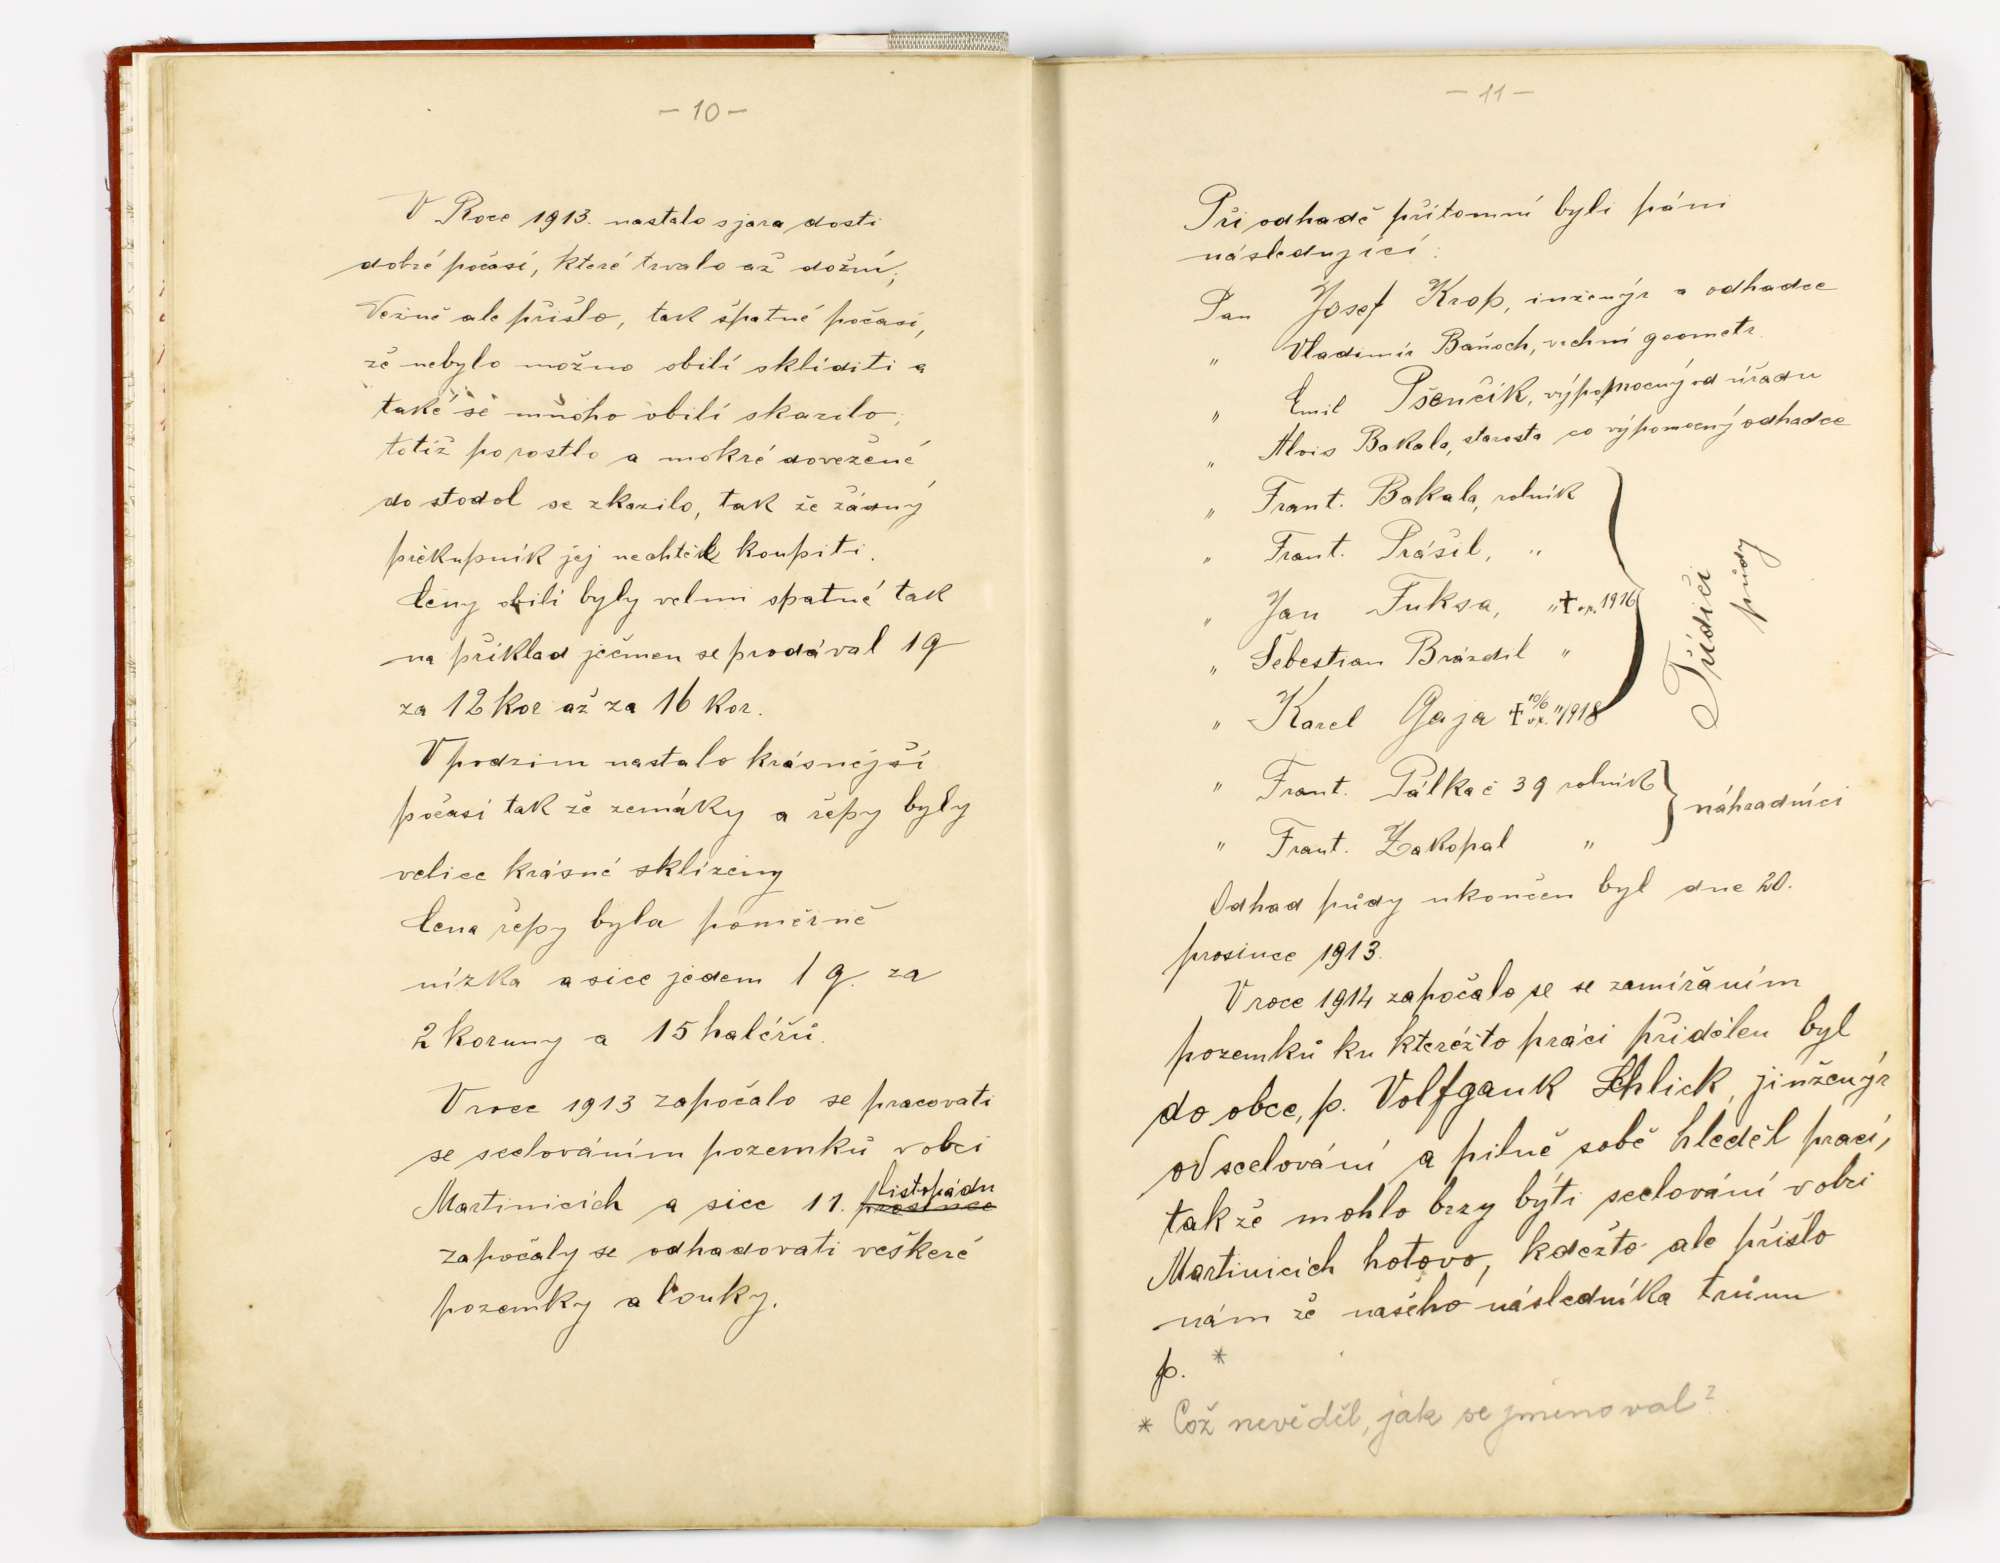 - 10 -
V Roce 1913. nastalo sjara dosti
dobré počasí, které trvalo až dožní;
Vežně ale přišlo, tak špatné počasí,
že nebylo možno obilí skliditi a
také se mnoho obilí skazilo;
totiž porostlo a mokré dovežené
do stodol se zkazilo, tak že žádný
překupník jej nechtěl koupiti.
Ceny obilí byly velmi spatné tak
na příklad ječmen se prodával 1 q
za 12 kor až za 16 kor.
V podzim nastalo krásnější
počasí tak že zemáky a řepy byly
velice krásné sklizeny
Cena řepy byla poměrně
nízka a sice jedem 1 q. za
2 koruny a 15 haléřů.
V roce 1913 započalo se pracovati
se scelováním pozemků v obci
Martinicích a sice 11. prosince listopádu
započaly se odhadovati veškeré
pozemky a louky.
- 11 -
Při odhadě přítomní byli páni
následující:
Pan Josef Krop, inženýr a odhadce
„ Vladimír Baňoch, vrchní geometr.
„ Emil Pšenčík, výpomocný od úřadu
„ Alois Bakala, starosta co výpomocný odhadce
„ Frant. Bakala, rolník
„ Frant. Prášil, „
„ Jan Fuksa, „ † 1916
„ Šebestian Brázdil „
„ Karel Gaja † 10/6 „ 1918
Třídiči půdy
„ Frant. Pálkač 39 rolník
„ Frant. Zakopal „
náhradníci
Odhad půdy ukončen byl dne 20.
prosince 1913.
V roce 1914 započalo se se zamířáním
pozemků ku kteréžto práci přidělen byl
do obce, p. Volfgank Schlick, jinženýr
od scelování a pilně sobě hleděl prací,
takže mohlo brzy býti scelování v obci
Martinicích hotovo, kdežto ale přišlo
nám že našeho následníka trůnu
p. *
* Což nevěděl, jak se jmenoval?